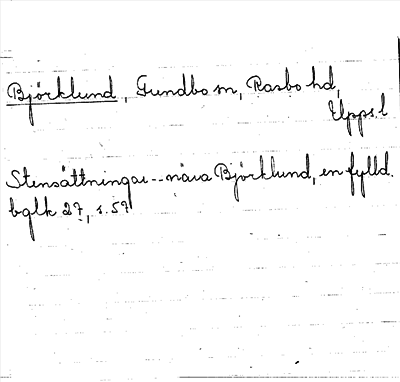 Björklund, Gundbo m, Rasbo hd,
Upps. l
Stensättningar -- nära Björklund, en fylld.
bglk 27, s. 59